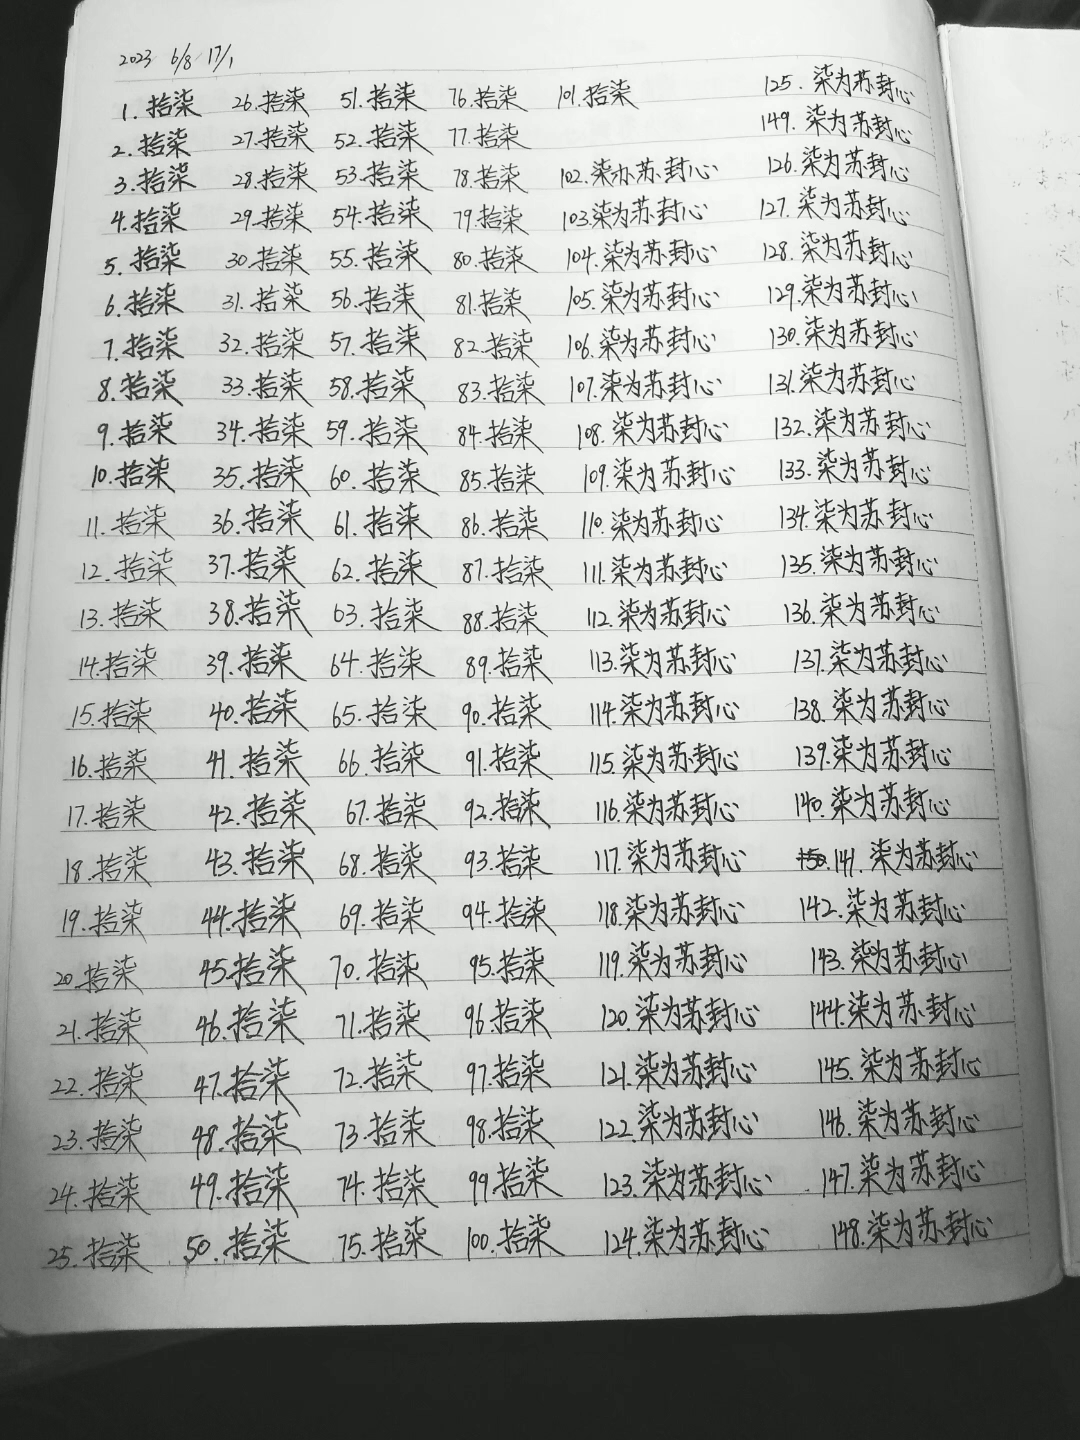 2023 6/8 17/1
1.拾柒
2.拾柒
3.拾柒
4.拾柒
5.拾柒
6.拾柒
7.拾柒
8.拾柒
9.拾柒
10.拾柒
11.拾柒
12.拾柒
13.拾柒
14.拾柒
15.拾柒
16.拾柒
17.拾柒
18.拾柒
19.拾柒
20.拾柒
21.拾柒
22.拾柒
23.拾柒
24.拾柒
25.拾柒
26.拾柒
27.拾柒
28.拾柒
29.拾柒
30.拾柒
31.拾柒
32.拾柒
33.拾柒
34.拾柒
35.拾柒
36.拾柒
37.拾柒
38.拾柒
39.拾柒
40.拾柒
41.拾柒
42.拾柒
43.拾柒
44.拾柒
45.拾柒
46.拾柒
47.拾柒
48.拾柒
49.拾柒
50.拾柒
51.拾柒
52.拾柒
53.拾柒
54.拾柒
55.拾柒
56.拾柒
57.拾柒
58.拾柒
59.拾柒
60.拾柒
61.拾柒
62.拾柒
63.拾柒
64.拾柒
65.拾柒
66.拾柒
67.拾柒
68.拾柒
69.拾柒
70.拾柒
71.拾柒
72.拾柒
73.拾柒
74.拾柒
75.拾柒
76.拾柒
77.拾柒
78.拾柒
79.拾柒
80.拾柒
81.拾柒
82.拾柒
83.拾柒
84.拾柒
85.拾柒
86.拾柒
87.拾柒
88.拾柒
89.拾柒
90.拾柒
91.拾柒
92.拾柒
93.拾柒
94.拾柒
95.拾柒
96.拾柒
97.拾柒
98.拾柒
99.拾柒
100.拾柒
101.拾柒
102.柒为苏封心
103.柒为苏封心
104.柒为苏封心
105.柒为苏封心
106.柒为苏封心
107.柒为苏封心
108.柒为苏封心
109.柒为苏封心
110.柒为苏封心
111.柒为苏封心
112.柒为苏封心
113.柒为苏封心
114.柒为苏封心
115.柒为苏封心
116.柒为苏封心
117.柒为苏封心
118.柒为苏封心
119.柒为苏封心
120.柒为苏封心
121.柒为苏封心
122.柒为苏封心
123.柒为苏封心
124.柒为苏封心
125.柒为苏封心
149.柒为苏封心
126.柒为苏封心
127.柒为苏封心
128.柒为苏封心
129.柒为苏封心
130.柒为苏封心
131.柒为苏封心
132.柒为苏封心
133.柒为苏封心
134.柒为苏封心
135.柒为苏封心
136.柒为苏封心
137.柒为苏封心
138.柒为苏封心
139.柒为苏封心
140.柒为苏封心
141.柒为苏封心
142.柒为苏封心
143.柒为苏封心
144.柒为苏封心
145.柒为苏封心
146.柒为苏封心
147.柒为苏封心
148.柒为苏封心